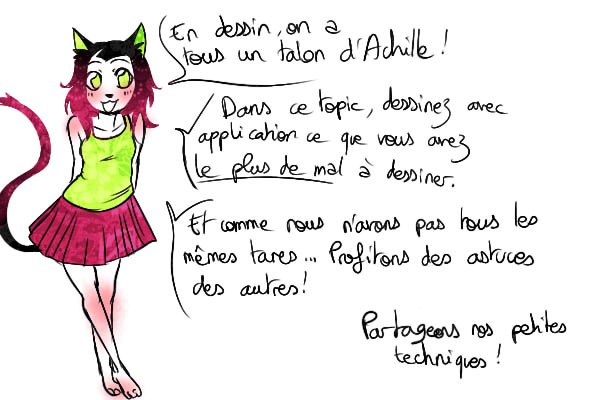 En dessin, on a
tous un talon d'Achille !
Dans ce topic, dessinez avec
application ce que vous avez
le plus de mal à dessiner.
Et comme nous n'avons pas tous les
mêmes tares... Profitons des astuces
des autres !
Partageons nos petites
techniques !